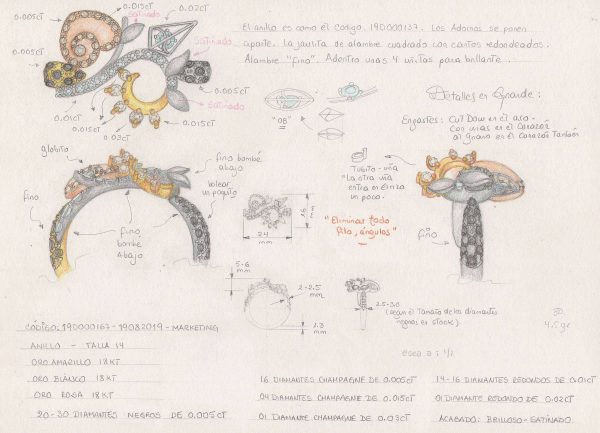 0.015CT
0.02CT
0.005CT
Satinado
Satinado
0.005CT
Satinado
0.01CT
0.015CT
0.03CT
0.005CT
El anillo es como el Código. 190000137. Los Adornos se ponen
aparte. La jaulita de alambre cuadrado con cantos redondeados.
Alambre "fino". Adentro unas 4 uñitas para brillante.
"OB"
Detalles en Grande:
Engastes: Cut Down en el aro
Con uñas en el Corazón
al Grano en el Corazón También
globito
fino bombé
abajo
bolear
un poquito
fino
fino,
bombé
Abajo
Tubito - uña
"La otra uña
entra en el riza
un poco.
"Eliminar todo
filo, ángulos"
fino
24
mm
15
mm
5-6
mm
2-2.5
mm
2.3
mm
2.5-3.0
(según el Tamaño de los diamantes
negros en stock)
4.5 gr
esca 0: 1/1
CÓDIGO: 190000167 - 19082019 - MARKETING
ANILLO - TALLA 14
ORO AMARILLO 18KT
ORO BLANCO 18KT
ORO ROSA 18KT
20-30 DIAMANTES NEGROS DE 0.005CT
16 DIAMANTES CHAMPAGNE DE 0.005CT
04 DIAMANTES CHAMPAGNE DE 0.015CT
01 DIAMANTE CHAMPAGNE DE 0.03CT
14-16 DIAMANTES REDONDOS DE 0.01CT
01 DIAMANTE REDONDO DE 0.02CT
ACABADO: BRILLOSO - SATINADO